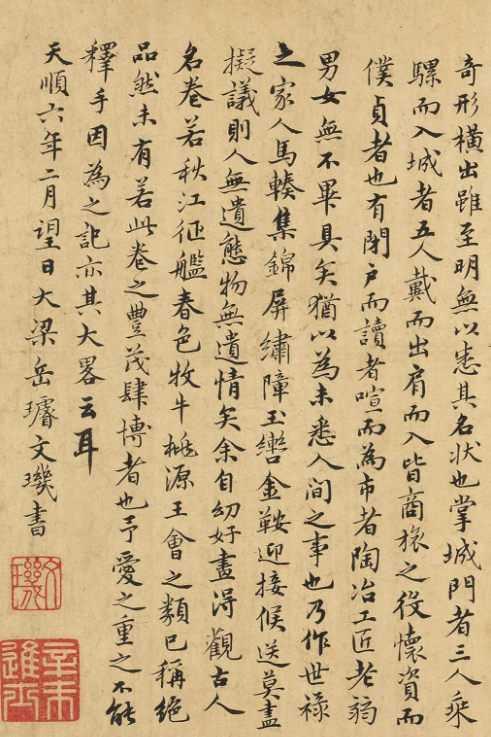 奇形橫出雖至明無以悉其名狀也掌城門者三人乘
騾而入城者五人戴而出肩而入皆商旅之役懷資而
僕貞者也有閉户而讀者喧而為市者陶冶工匠老弱
男女無不畢具矣猶以為未悉人間之事也乃作世祿
之家人馬輳集錦屏繡障玉轡金鞍迎接候送莫盡
擬議則人無遺態物無遺情矣余自幼好畫得觀古人
名卷若秋江征艦春色牧牛桃源王會之類已稱絕
品然未有若此卷之豐茂肆博者也予愛之重之不能
釋手因為之記亦其大畧云耳
天順六年二月望日大梁岳璿文璣書
文璣
辛未進士